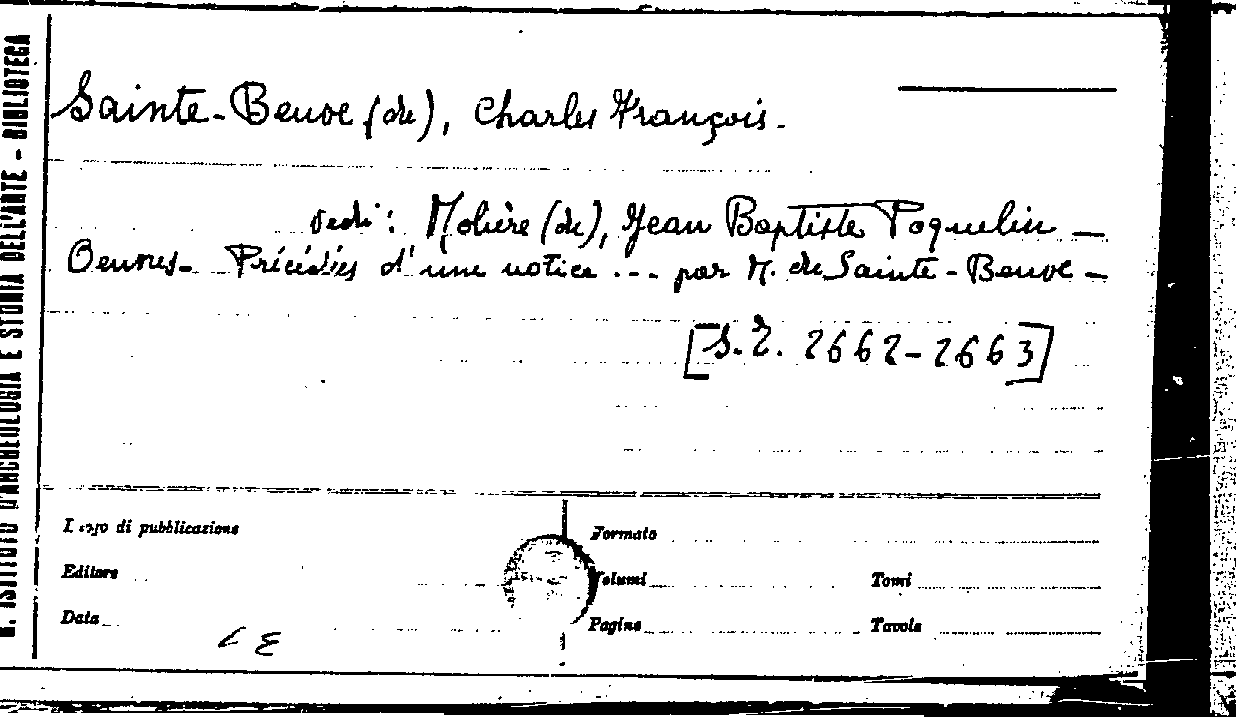 R. ISTITUTO D'ARCHEOLOGIA E STORIA DELL'ARTE - BIBLIOTECA
Sainte-Beuve (de), Charles François.
vedi: Molière (de), Jean Baptiste Poquelin —
Oeuvres. Précédés d'une notice ... par M. de Sainte-Beuve —
[S.T. 2662-2663]
Luogo di pubblicazione
Formato
Editore
Volumi
Tomi
Data
Pagine
Tavole